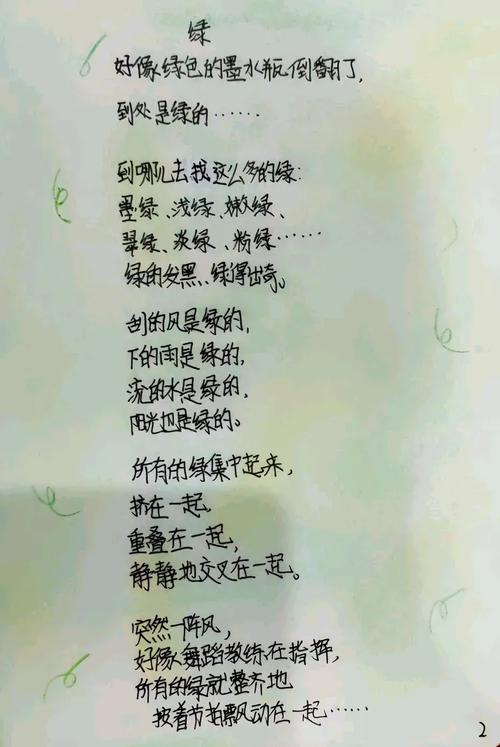 绿
好像绿色的墨水瓶倒翻了,
到处是绿的……
到哪儿去找这么多的绿:
墨绿、浅绿、嫩绿、
翠绿、淡绿、粉绿……
绿的发黑、绿得出奇。
刮的风是绿的,
下的雨是绿的,
流的水是绿的,
阳光也是绿的。
所有的绿集中起来,
挤在一起,
重叠在一起,
静静地交叉在一起。
突然一阵风,
好像舞蹈教练在指挥,
所有的绿就整齐地
按着节拍飘动在一起……
2